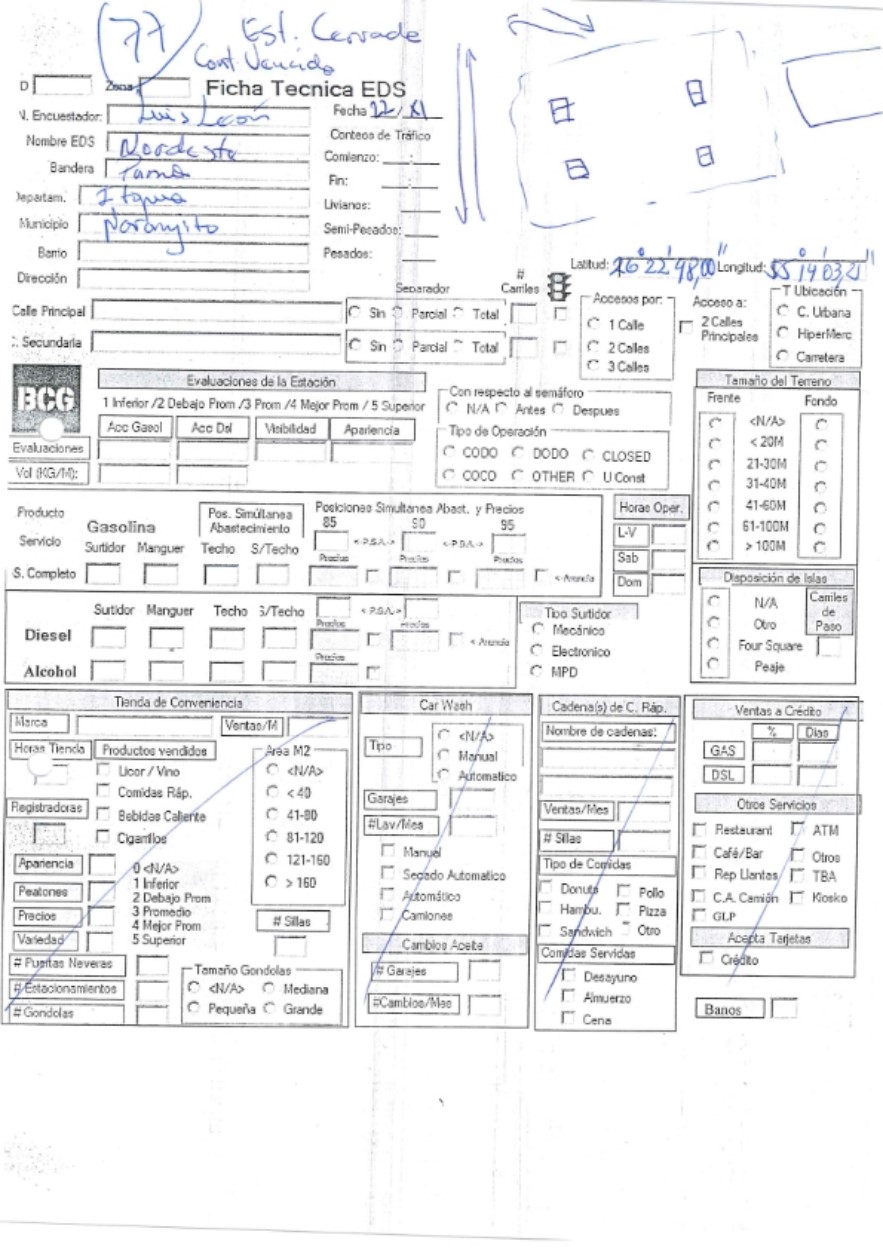 77 Est. Cerrada
Cont Vencido
D Zona Ficha Tecnica EDS
N. Encuestador: Luis León Fecha 22/XI
Nombre EDS Nordeste Conteos de Tráfico
Bandera Comienzo: __:__
Departam. Itapua Fin: __:__
Livianos:
Municipio Naranjito Semi-Pesados:
Barrio Pesados:
Dirección
Latitud: 26°22'48,00" Longitud: 55°14'03,21"
Separador # Carriles
Calle Principal Sin Parcial Total
C. Secundaria Sin Parcial Total
Accesos por:
1 Calle
2 Calles
3 Calles
Acceso a:
2 Calles Principales
T Ubicación
C. Urbana
HiperMerc
Carretera
BCG
Evaluaciones de la Estación
1 Inferior /2 Debajo Prom /3 Prom /4 Mejor Prom / 5 Superior
Acc Gasol Acc Dsl Visibilidad Apariencia
Evaluaciones
Vol (KG/M):
Con respecto al semáforo
N/A Antes Despues
Tipo de Operación
CODO DODO CLOSED
COCO OTHER U Const
Tamaño del Terreno
Frente Fondo
<N/A>
< 20M
21-30M
31-40M
41-60M
61-100M
> 100M
Producto Gasolina
Servicio
Pos. Simúltanea Abastecimiento
Posiciones Simultanea Abast. y Precios
85 90 95
<-P.S.A.-> <-P.S.A.->
Surtidor Manguer Techo S/Techo Precios Precios Precios
S. Completo <-Anuncia
Horas Oper.
L-V
Sab
Dom
Disposición de Islas
N/A
Otro
Four Square
Peaje
Carriles de Paso
Surtidor Manguer Techo S/Techo <-P.S.A.->
Precios Precios
Diesel <-Anuncia
Precios
Alcohol
Tipo Surtidor
Mecánico
Electronico
MPD
Tienda de Conveniencia
Marca Ventas/M
Horas Tienda Productos vendidos
Licor / Vino
Comidas Ráp.
Bebidas Caliente
Cigarrillos
Registradoras
Area M2
<N/A>
< 40
41-80
81-120
121-160
> 160
Apariencia
Peatones
Precios
Variedad
0 <N/A>
1 Inferior
2 Debajo Prom
3 Promedio
4 Mejor Prom
5 Superior
# Sillas
# Puertas Neveras
# Estacionamientos
# Gondolas
Tamaño Gondolas
<N/A> Mediana
Pequeña Grande
Car Wash
Tipo
<N/A>
Manual
Automatico
Garajes
#Lav/Mes
Manual
Secado Automatico
Automático
Camiones
Cambios Aceite
# Garajes
#Cambios/Mes
Cadena(s) de C. Ráp.
Nombre de cadenas:
Ventas/Mes
# Sillas
Tipo de Comidas
Donuts Pollo
Hambu. Pizza
Sandwich Otro
Comidas Servidas
Desayuno
Almuerzo
Cena
Ventas a Crédito
% Dias
GAS
DSL
Otros Servicios
Restaurant ATM
Café/Bar Otros
Rep Llantas TBA
C.A. Camión Kiosko
GLP
Acepta Tarjetas
Crédito
Banos